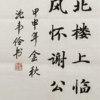 北楼上临
风怀谢公
甲申年金秋
沈韦俗书